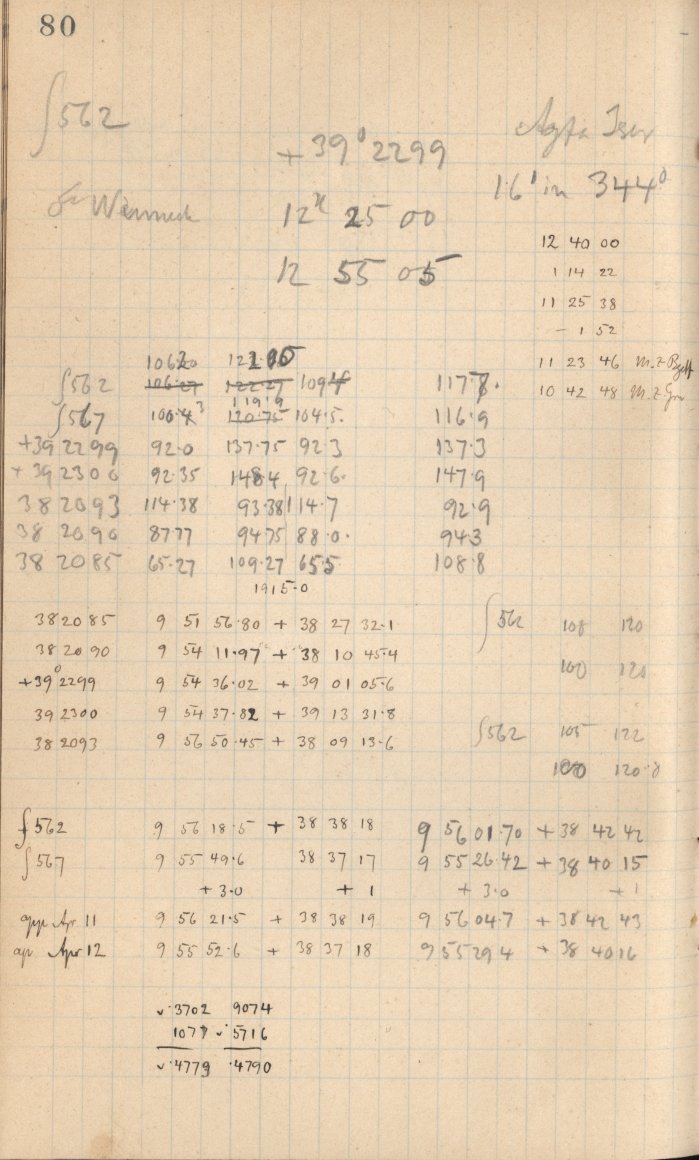 80
∫562
+39° 2299
16' in 344°
12 25 00
12 55 05
12 40 00
1 14 22
11 25 38
- 1 52
11 23 46 M.Z
10 42 48 M.Z Grw
∫562 109.4 117.7.
∫567 104.5. 116.9
+39 2299 92.0 137.75 92.3 137.3
+39 2300 92.35 148.4 92.6. 147.9
38 2093 114.38 93.38 114.7 92.9
38 2090 87.77 94.75 88.0. 94.3
38 2085 65.27 109.27 65.5 108.8
1915.0
38 2085 9 51 56.80 + 38 27 32.1
38 2090 9 54 11.97 + 38 10 45.4
+39° 2299 9 54 36.02 + 39 01 05.6
39 2300 9 54 37.82 + 39 13 31.8
38 2093 9 56 50.45 + 38 09 13.6
∫562 108 120
100 120
∫562 105 122
100 120.8
∫562 9 56 18.5 + 38 38 18 9 56 01.70 + 38 42 42
∫567 9 55 49.6 38 37 17 9 55 26.42 + 38 40 15
+ 3.0 + 1 + 3.0 + 1
app Apr 11 9 56 21.5 + 38 38 19 9 56 04.7 + 38 42 43
ap Apr 12 9 55 52.6 + 38 37 18 9 55 29 4 + 38 40 16
✓.3702 9074
1077 ✓.5716
✓.4779 .4790